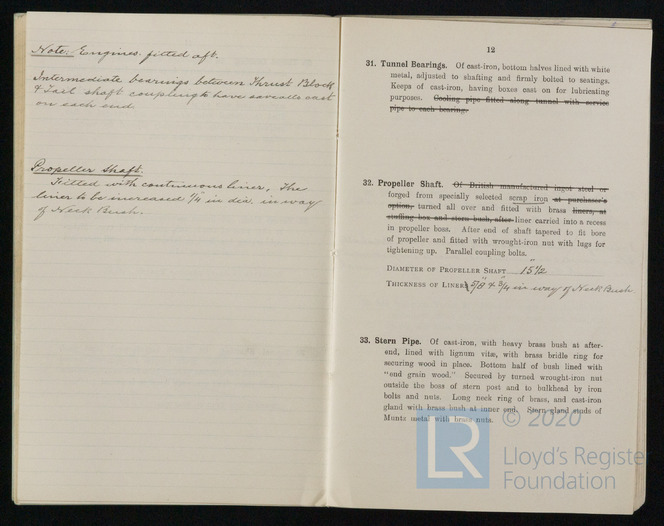 Note: Engines fitted aft.
Intermediate bearings between Thrust Block
& Tail shaft coupling to have savealls cast
on each end
Propeller Shaft.
Fitted with continuous liner, the
liner to be increased 1/4 in dia in way
of Neck Bush.
12
31. Tunnel Bearings. Of cast-iron, bottom halves lined with white
metal, adjusted to shafting and firmly bolted to seatings.
Keeps of cast-iron, having boxes cast on for lubricating
purposes. Cooling pipe fitted along tunnel with service
pipe to each bearing.
32. Propeller Shaft. Of British manufactured ingot steel or
forged from specially selected scrap iron at purchaser's
option, turned all over and fitted with brass liners, at
stuffing box and stern bush, after liner carried into a recess
in propeller boss. After end of shaft tapered to fit bore
of propeller and fitted with wrought-iron nut with lugs for
tightening up. Parallel coupling bolts.
Diameter of Propeller Shaft 15 1/2"
Thickness of Liner 5/8" & 3/4" in way of Neck Bush
33. Stern Pipe. Of cast-iron, with heavy brass bush at after-
end, lined with lignum vitæ, with brass bridle ring for
securing wood in place. Bottom half of bush lined with
"end grain wood." Secured by turned wrought-iron nut
outside the boss of stern post and to bulkhead by iron
bolts and nuts. Long neck ring of brass, and cast-iron
gland with brass bush at inner end. Stern gland studs of
Muntz metal with brass nuts.
LR
© 2020
Lloyd's Register
Foundation